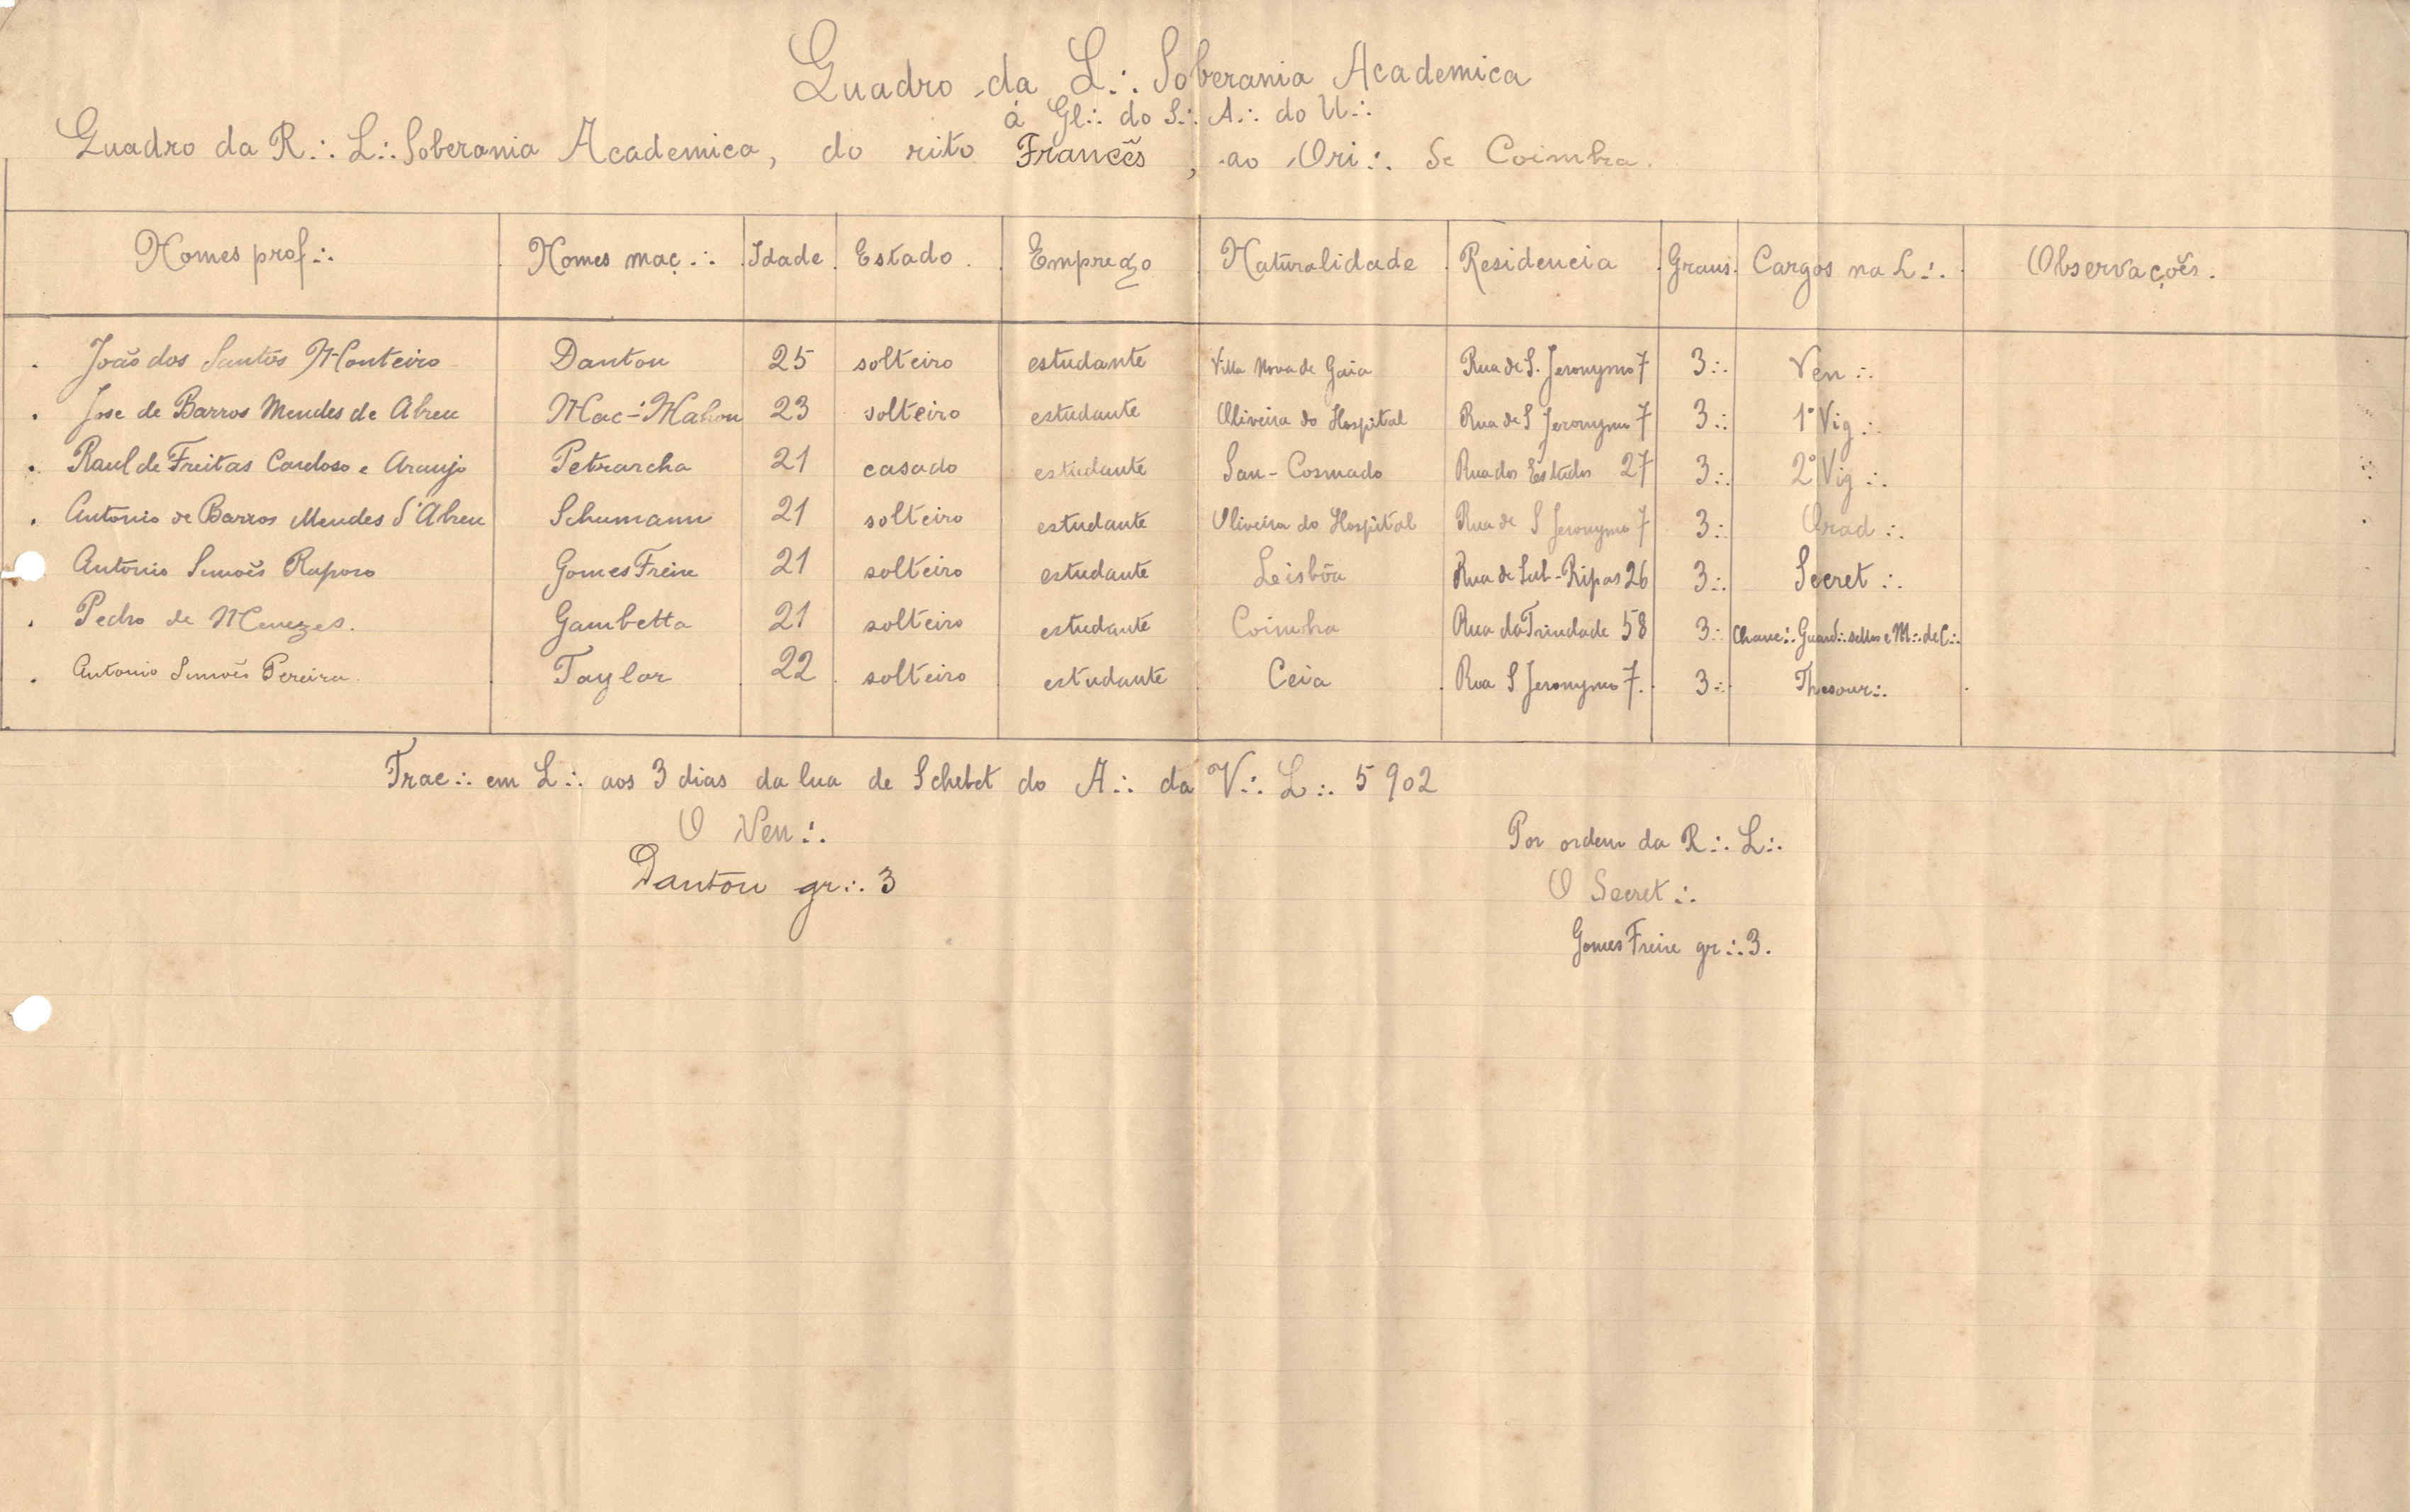 Quadro da L∴ Soberania Academica
á Gl∴ do S∴ A∴ do U∴
Quadro da R∴ L∴ Soberania Academica, do rito Francês, ao Ori∴ de Coimbra.
Nomes prof∴ Nomes maç∴ Idade Estado Emprego Naturalidade Residencia Graus Cargos na L∴ Observações.
João dos Santos Monteiro Danton 25 solteiro estudante Villa Nova de Gaia Rua de S. Jeronymo 7 3∴ Ven∴
Jose de Barros Mendes de Abreu Mac-Mahon 23 solteiro estudante Oliveira do Hospital Rua de S Jeronymo 7 3∴ 1º Vig∴
Raul de Freitas Cardoso e Araujo Petrarcha 21 casado estudante San-Cosmado Rua dos Estudos 27 3∴ 2º Vig∴
Antonio de Barros Mendes d'Abreu Schumann 21 solteiro estudante Oliveira do Hospital Rua de S Jeronymo 7 3∴ Orad∴
Antonio Simões Raposo Gomes Freire 21 solteiro estudante Leisbôa Rua de Sub-Ripas 26 3∴ Secret∴
Pedro de Menezes. Gambetta 21 solteiro estudante Coimbra Rua da Trindade 58 3∴ Chanc∴ Guard∴ sellos e M∴ de C∴
Antonio Simões Pereira Taylor 22 solteiro estudante Ceia Rua S Jeronymo 7. 3∴ Thesour∴
Trac∴ em L∴ aos 3 dias da lua de Schebet do A∴ da V∴ L∴ 5902
O Ven∴
Danton gr∴ 3
Por ordem da R∴ L∴
O Secret∴
Gomes Freire gr∴ 3.